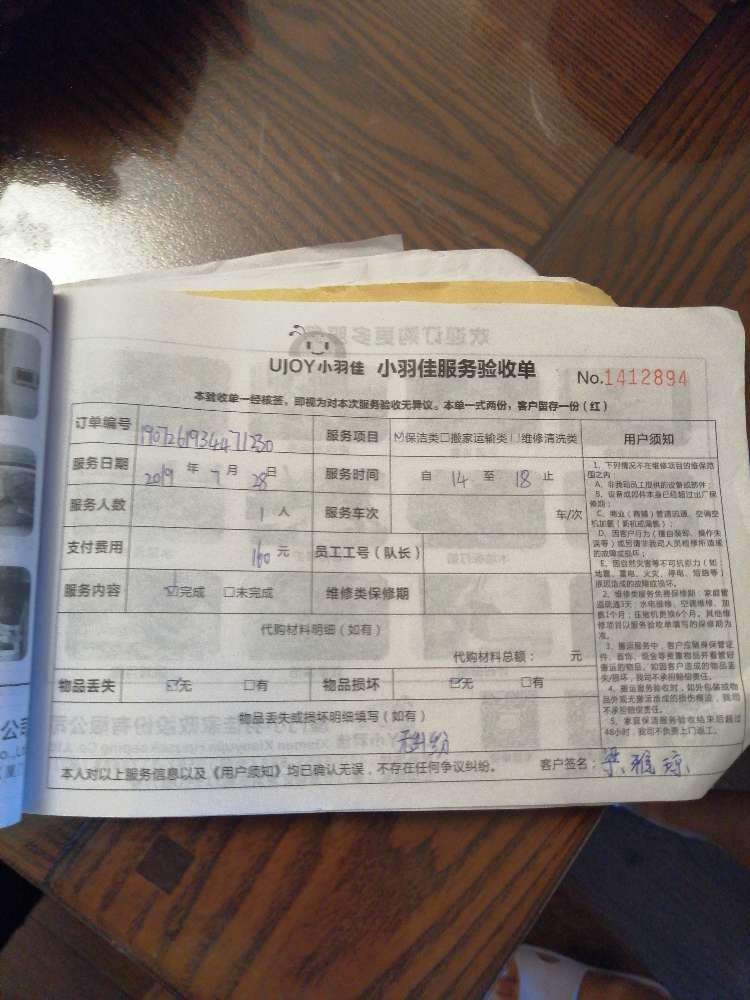 UJOY小羽佳 小羽佳服务验收单 No.1412894
本验收单一经核签，即视为对本次服务验收无异议。本单一式两份，客户留存一份（红）
订单编号 1907261934471230 服务项目 ☑保洁类□搬家运输类□维修清洗类 用户须知
服务日期 2019 年 7 月 28 日 服务时间 自 14 至 18 止
服务人数 1 人 服务车次 车/次
支付费用 160 元 员工工号（队长）
服务内容 ☑完成 □未完成 维修类保修期
代购材料明细（如有）
代购材料总额： 元
物品丢失 ☑无 □有 物品损坏 ☑无 □有
物品丢失或损坏明细填写（如有）
无纠纷
本人对以上服务信息以及《用户须知》均已确认无误，不存在任何争议纠纷。 客户签名：梁雅琼
1、下列情况不在维修项目的维保范
围之内：
A、非我司员工提供的设备或部件；
B、设备或部件本身已经超过出厂保
修期；
C、商业（商铺）管道疏通、空调空
机加氟（新机或漏氟）；
D、因客户行为（擅自装卸、操作失
误等）或另请非我司人员检修所造成
的故障或损坏；
E、因自然灾害等不可抗影力（如：
地震、雷电、火灾、停电、短路等）
原因造成的故障或损坏。
2、维修类服务免费保修期：家庭管
道疏通3天；水电维修、空调维修、加
氟1个月；压缩机更换6个月。其他维
修项目以服务验收单填写的保修期为
准。
3、搬运服务中，客户应随身保管证
件、首饰、现金等贵重物品并看管好
搬运的物品。如因客户造成的物品丢
失/损坏，我司不承担赔偿责任。
4、搬运服务验收时，如外包装或物
品外观无搬运造成的损伤痕迹，我司
不承担赔偿责任。
5、家庭保洁服务验收结束后超过
48小时，我司不负责上门返工。